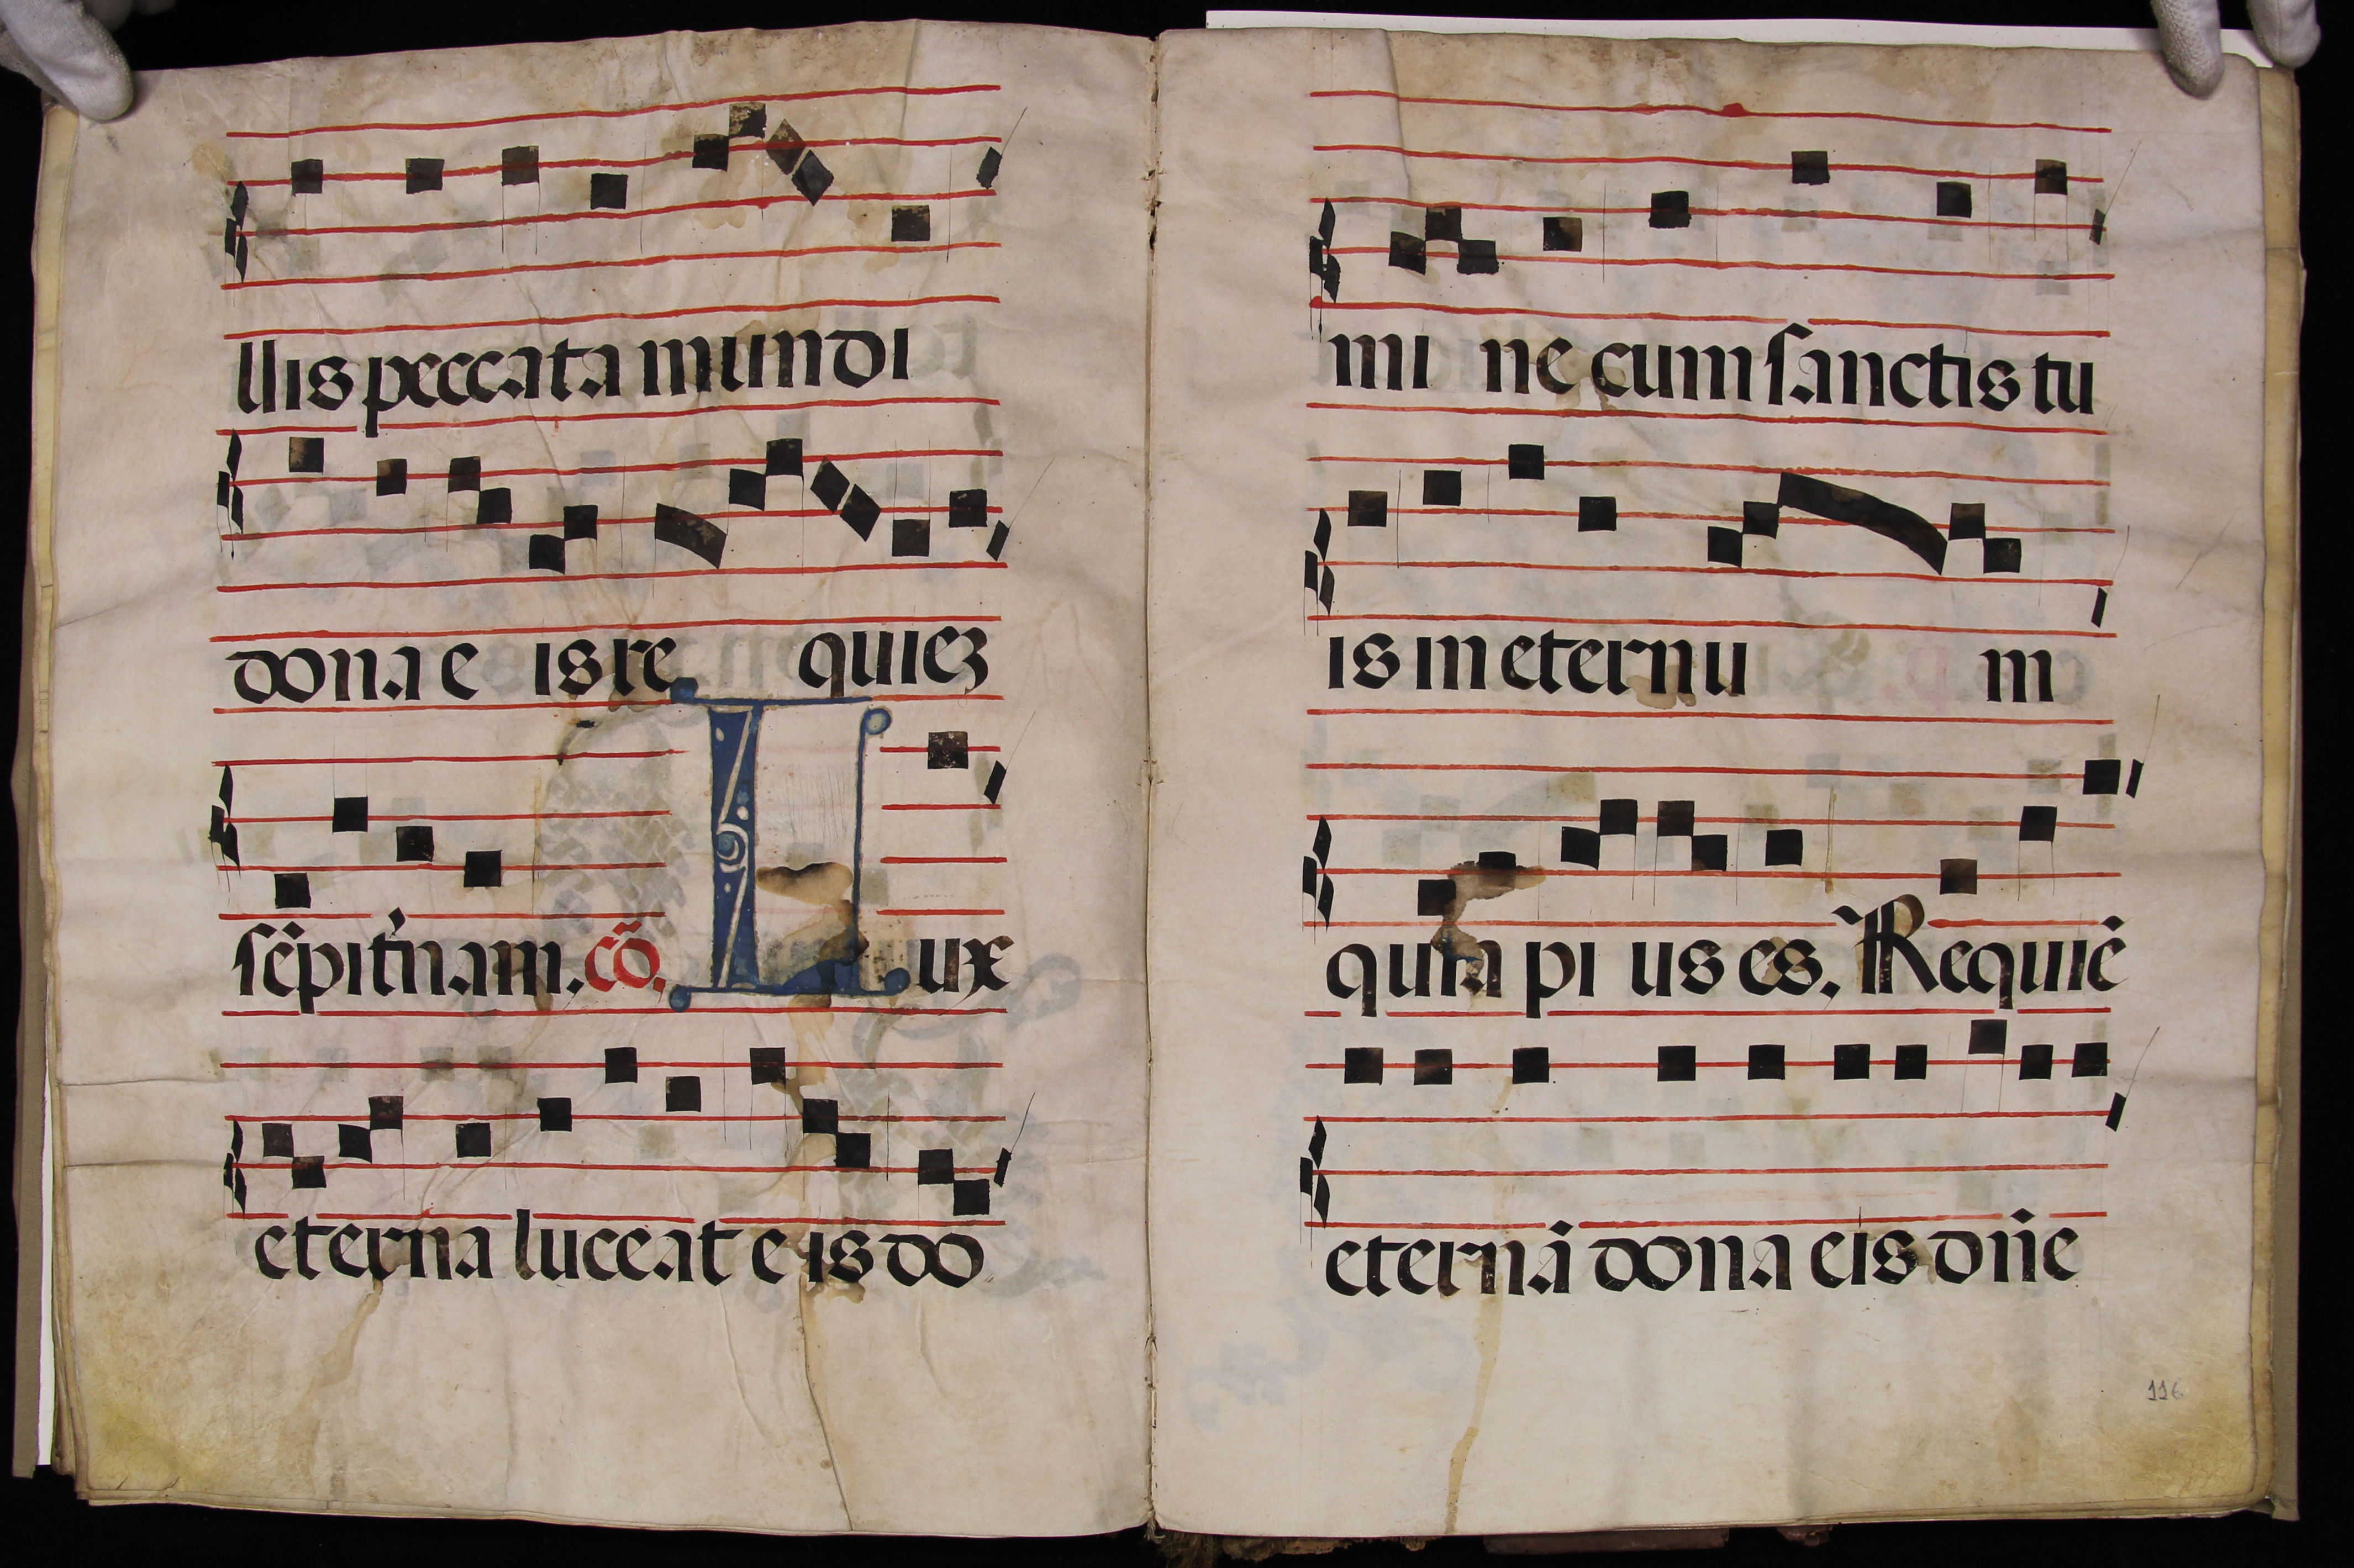 llis peccata mundi
dona e is re quiez
sẽpit̉nam. cõ. Lux
eterna luceat e is do
mi ne cum sanctis tu
is in eternu m
quia pi us es. ℟ Requiẽ
eternã dona eis dñe
116